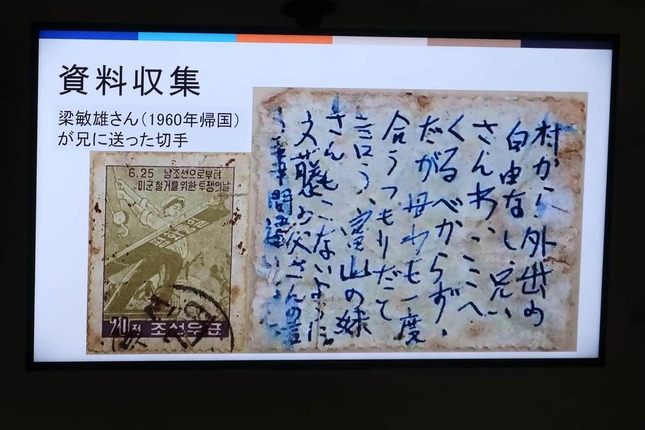 資料収集
梁敏雄さん（1960年帰国）
が兄に送った切手
6.25 남조선으로부터
미군 철거를 위한 투쟁의날
10전 조선우표
村から外出の
自由なし、兄い
さんわ、ここへ
くるべからず、
だが母わも一度
合うつもりだて
言ロう、富山の妹
さんもこないように、
文藤お父さんの言
う事間違いなし